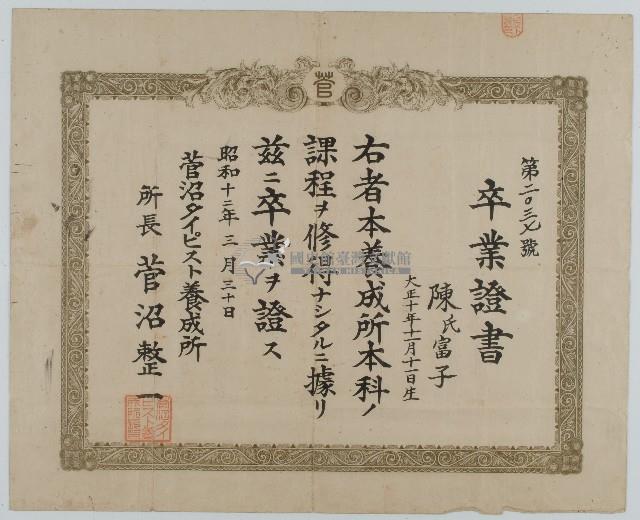 菅
第二〇三七號
卒業證書
陳氏富子
大正十年十一月十一日生
右者本養成所本科ノ
課程ヲ修得ナシタルニ據リ
茲ニ卒業ヲ證ス
昭和十二年三月三十日
菅沼タイピスト養成所
所長 菅沼整一
國史館臺灣文獻館